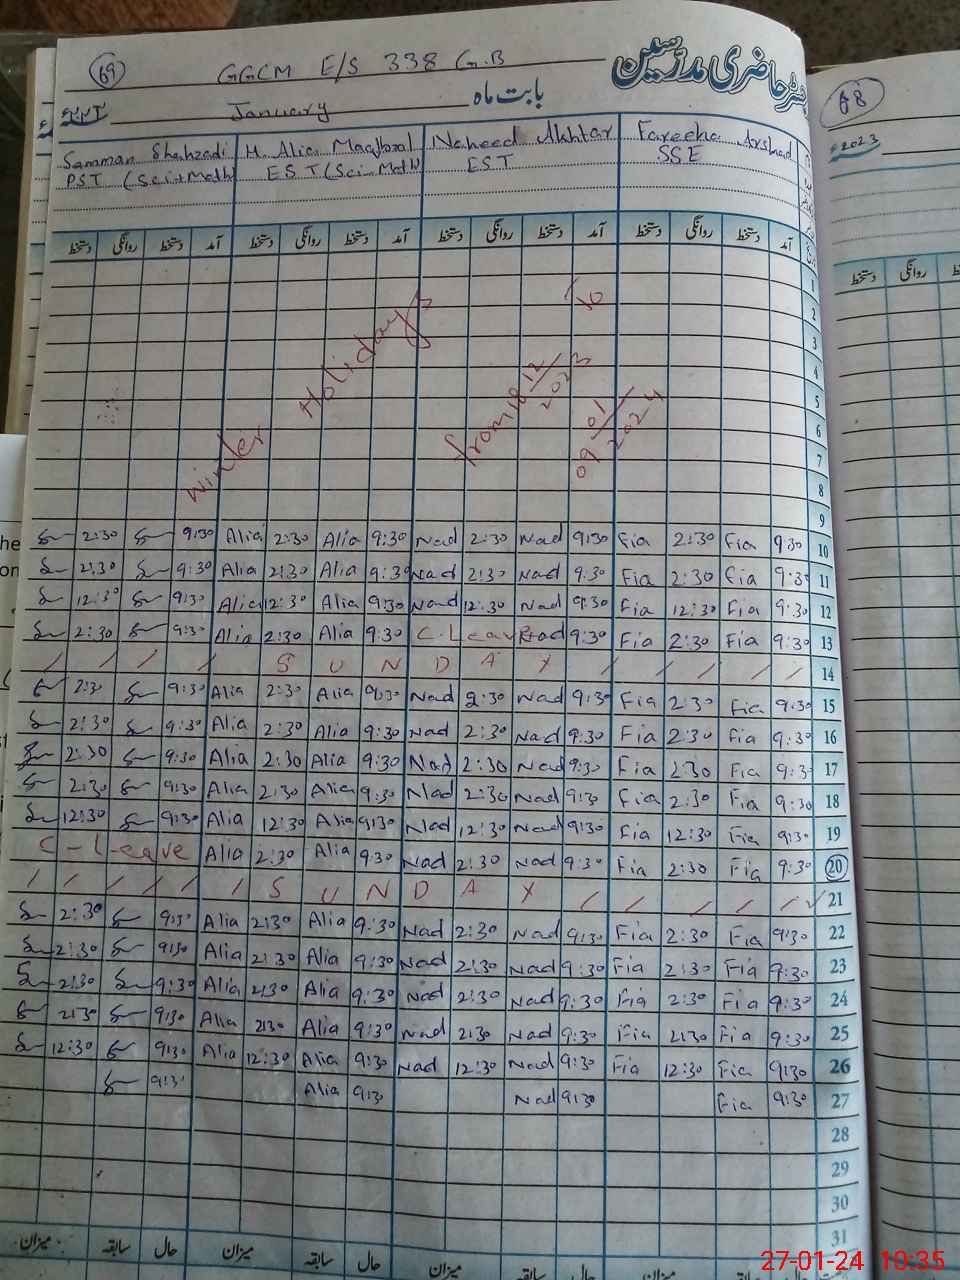 69 GGCM E/S 338 G.B رجسٹر حاضری مدرسین
January بابت ماہ
Samman Shahzadi M. Alia Maqbool Naheed Akhtar Fareeha Arshad
PST (Sci+Math) EST (Sci-Math) EST SSE
دستخط روانگی دستخط آمد دستخط روانگی دستخط آمد دستخط روانگی دستخط آمد دستخط روانگی دستخط آمد
1
2
3
4
5
6
7
8
9
Winter Holidays from 18 12/2023 to 09 01/2024
2:30 9:30 Alia 2:30 Alia 9:30 Nad 2:30 Nad 9:30 Fia 2:30 Fia 9:30 10
2:30 9:30 Alia 2:30 Alia 9:30 Nad 2:30 Nad 9:30 Fia 2:30 Fia 9:30 11
12:30 9:30 Alia 12:30 Alia 9:30 Nad 12:30 Nad 9:30 Fia 12:30 Fia 9:30 12
2:30 9:30 Alia 2:30 Alia 9:30 C.Leave Nad 9:30 Fia 2:30 Fia 9:30 13
/ / / / S U N D A Y / / / / / 14
2:30 9:30 Alia 2:30 Alia 9:30 Nad 2:30 Nad 9:30 Fia 2:30 Fia 9:30 15
2:30 9:30 Alia 2:30 Alia 9:30 Nad 2:30 Nad 9:30 Fia 2:30 Fia 9:30 16
2:30 9:30 Alia 2:30 Alia 9:30 Nad 2:30 Nad 9:30 Fia 2:30 Fia 9:30 17
2:30 9:30 Alia 2:30 Alia 9:30 Nad 2:30 Nad 9:30 Fia 2:30 Fia 9:30 18
12:30 9:30 Alia 12:30 Alia 9:30 Nad 12:30 Nad 9:30 Fia 12:30 Fia 9:30 19
C-Leave Alia 2:30 Alia 9:30 Nad 2:30 Nad 9:30 Fia 2:30 Fia 9:30 20
/ / / / / / S U N D A Y / / / / / 21
2:30 9:30 Alia 2:30 Alia 9:30 Nad 2:30 Nad 9:30 Fia 2:30 Fia 9:30 22
2:30 9:30 Alia 2:30 Alia 9:30 Nad 2:30 Nad 9:30 Fia 2:30 Fia 9:30 23
2:30 9:30 Alia 2:30 Alia 9:30 Nad 2:30 Nad 9:30 Fia 2:30 Fia 9:30 24
2:30 9:30 Alia 2:30 Alia 9:30 Nad 2:30 Nad 9:30 Fia 2:30 Fia 9:30 25
12:30 9:30 Alia 12:30 Alia 9:30 Nad 12:30 Nad 9:30 Fia 12:30 Fia 9:30 26
9:30 Alia 9:30 Nad 9:30 Fia 9:30 27
28
29
30
31
میزان سابقہ حال میزان سابقہ حال میزان سابقہ حال میزان سابقہ حال
68
2023
دستخط روانگی
27-01-24 10:35